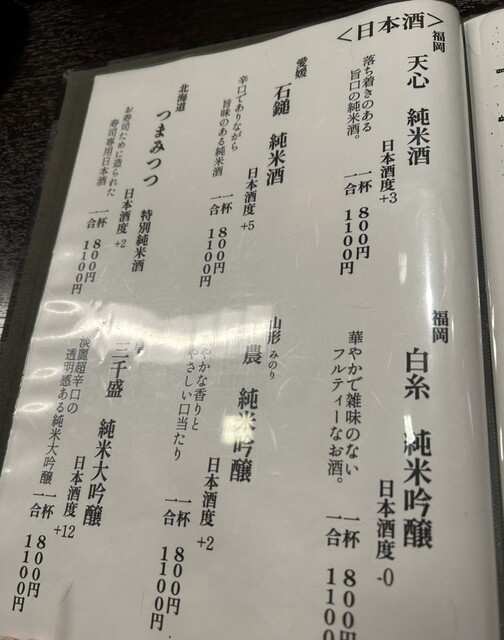 <日本酒>
福岡
天心 純米酒
日本酒度+3
落ち着きのある
旨口の純米酒。
一杯 800円
一合 1100円
愛媛
石鎚 純米酒
日本酒度+5
辛口でありながら
旨味のある純米酒
一杯 800円
一合 1100円
北海道
つまみつつ
特別純米酒
日本酒度+2
お寿司ために造られた
寿司専用日本酒
一杯 800円
一合 1100円
福岡
白糸 純米吟醸
日本酒度-0
華やかで雑味のない
フルティーなお酒。
一杯 800円
一合 1100
山形 みのり
農 純米吟醸
日本酒度+2
やかな香りと
やさしい口当たり
一杯 800円
一合 1100円
三千盛 純米大吟醸
日本酒度+12
淡麗超辛口の
透明感ある純米大吟醸
一杯 800円
一合 1100円